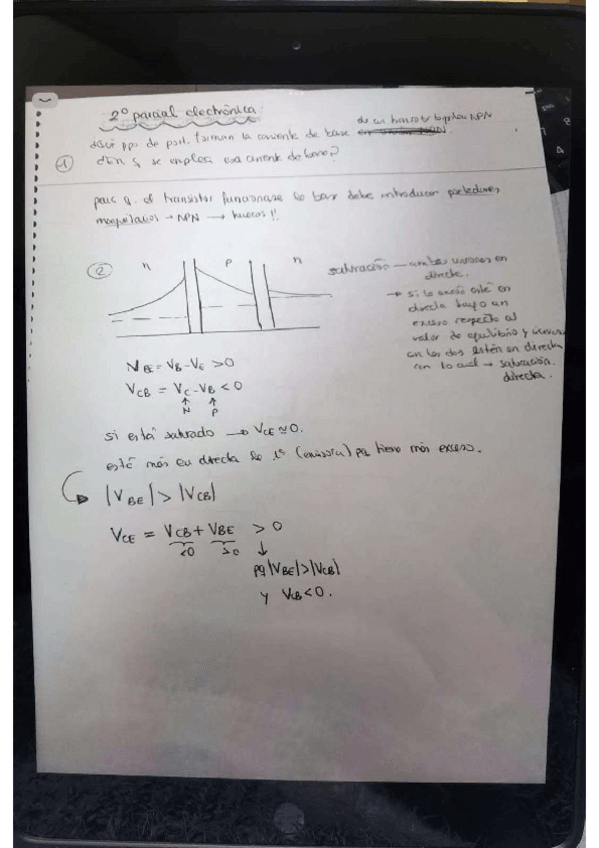 2º parcial electrónica
de un transistor bipolar NPN
de port. forman la corriente de base
se emplea esa corriente de base?
1
para q. el transistor funcionase la base debe introducir portadores
mayoritarios → NPN → huecos!!
2
n p n
saturación — ambas uniones en
directa.
→ si la unión está en
directa hay un
exceso respecto al
valor de equilibrio y
en las dos están en directa
con lo cual → saturación
directa.
VBE = VB - VE > 0
VCB = VC - VB < 0
N P
si está saturado → VCE ≃ 0.
está más en directa la 1ª (emisora) pq tiene más exceso.
|VBE| > |VCB|
VCE = VCB + VBE > 0
<0 >0
pq |VBE| > |VCB|
y VCB < 0.